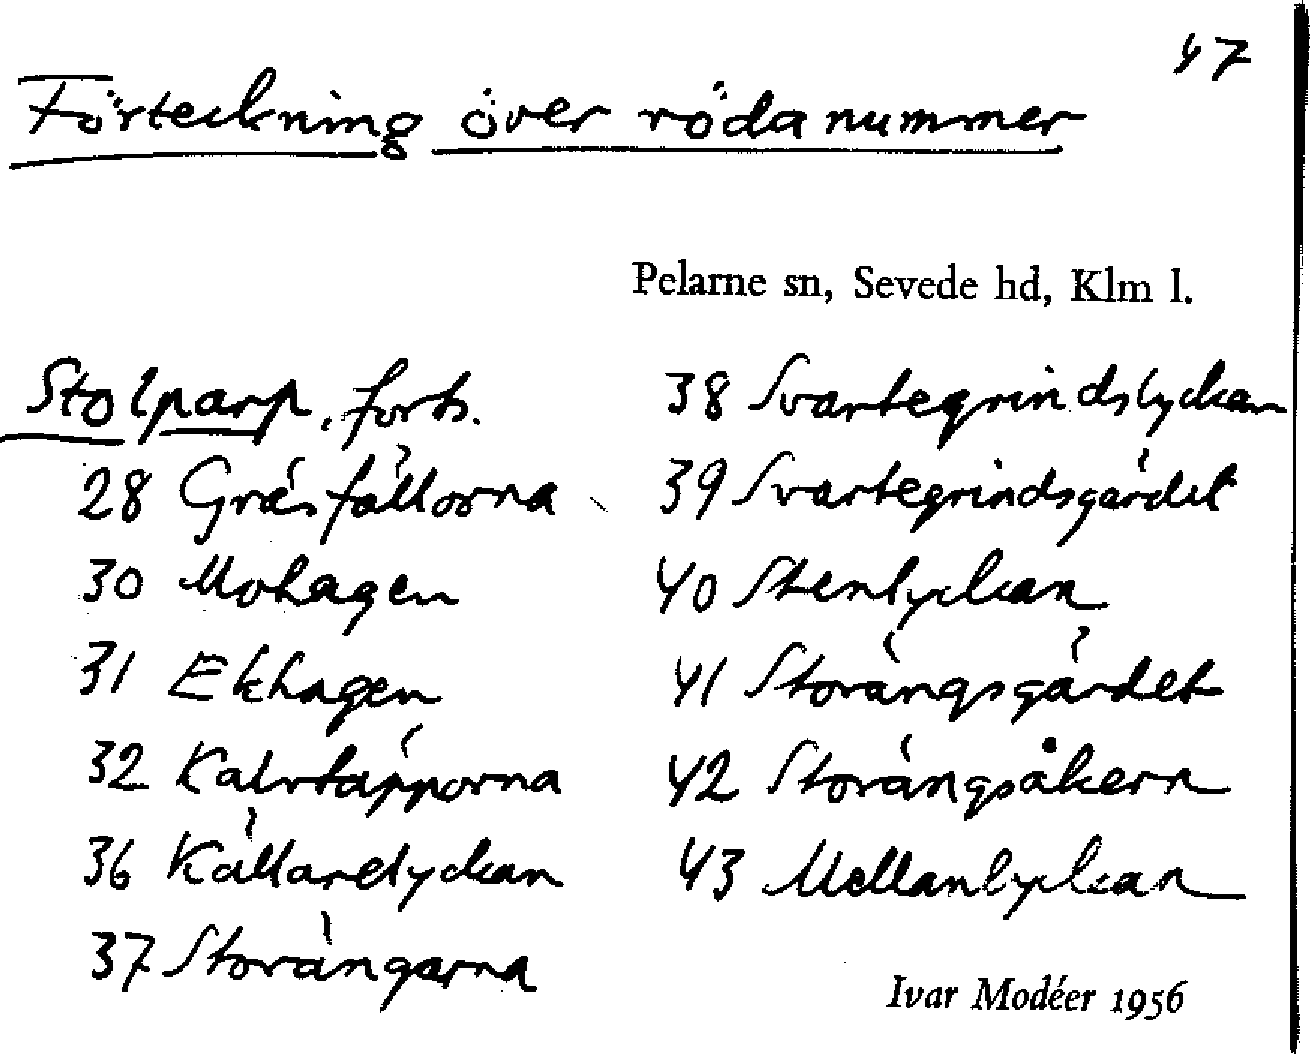 47
Förteckning över röda nummer
Pelarne sn, Sevede hd, Klm l.
Stolparp, forts.
28 Gräsfällorna
30 Mohagen
31 Ekhagen
32 Kalvtäpporna
36 Källarelyckan
37 Storängarna
38 Svartegrindslyckan
39 Svartegrindsgärdet
40 Stenlyckan
41 Storängsgärdet
42 Storängsåkern
43 Mellanlyckan
Ivar Modéer 1956